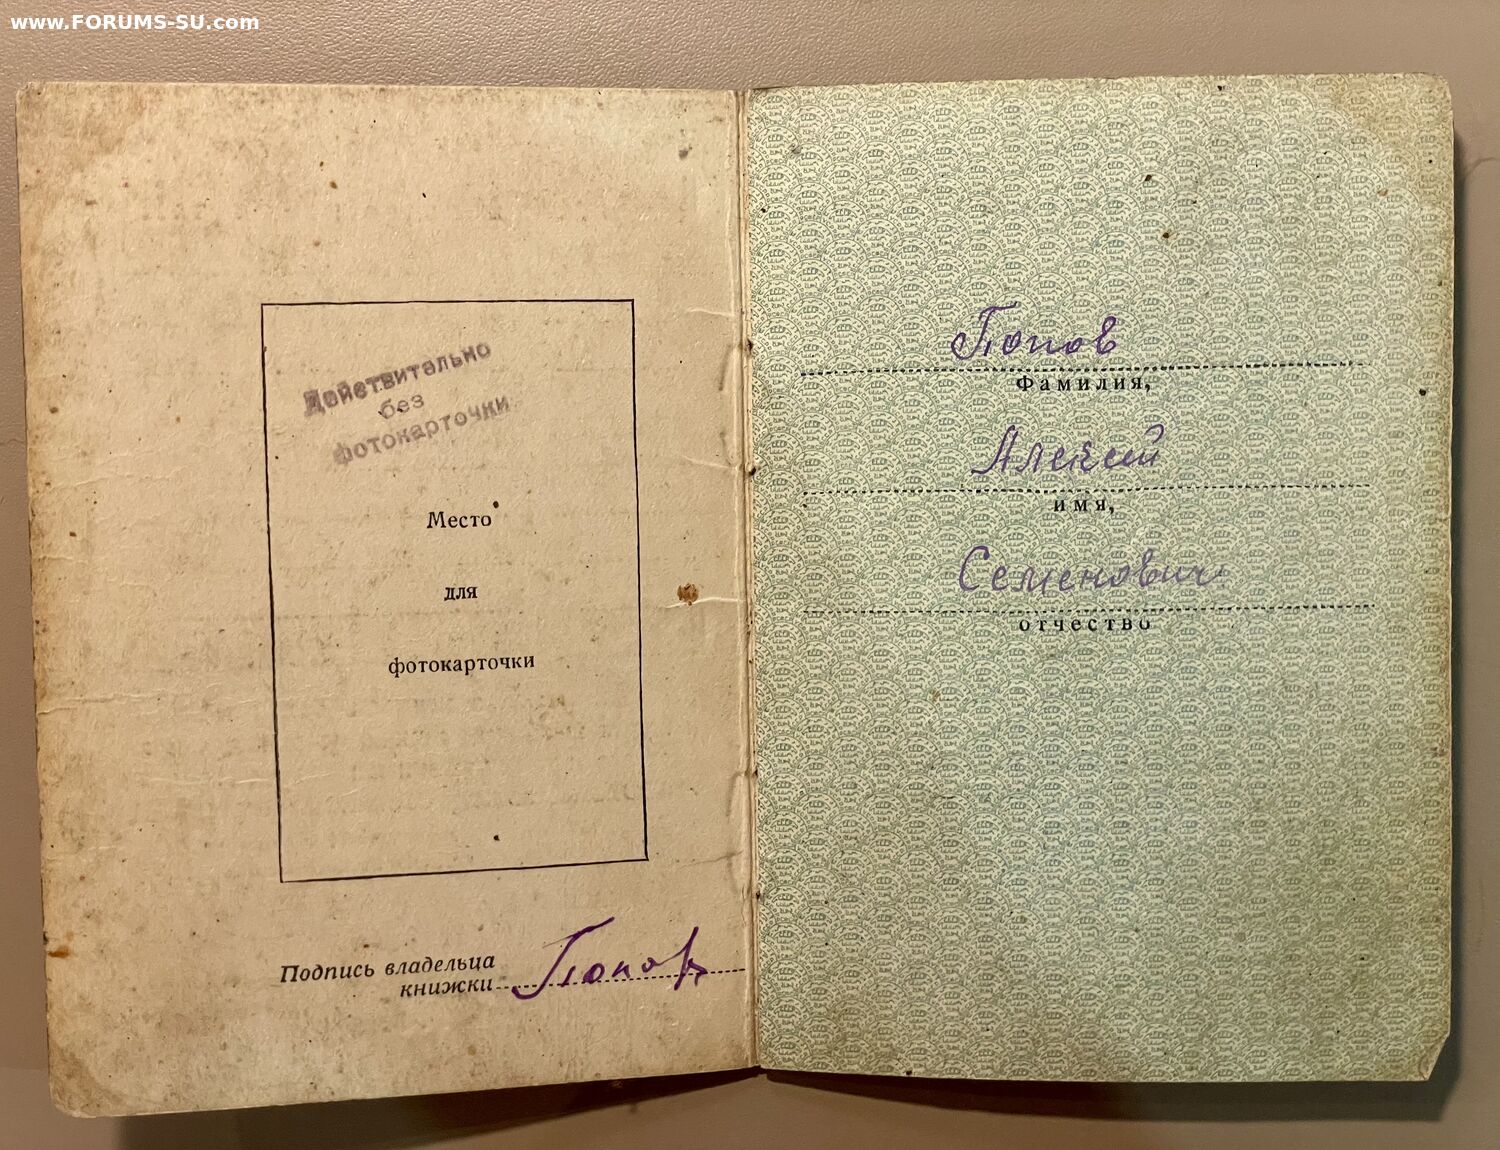 www.FORUMS-SU.com
Действительно
без
фотокарточки
Место
для
фотокарточки
Подпись владельца
книжки
Попов
Попов
Фамилия,
Алексей
имя,
Семенович
отчество